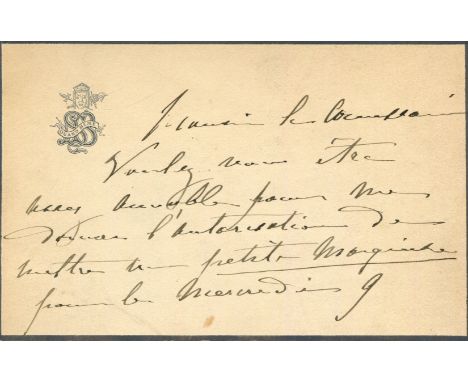 Monsieur le Commissaire
Voulez vous être
assez aimable pour me
donner l'autorisation de
mettre un petite
pour le Mercredi 9